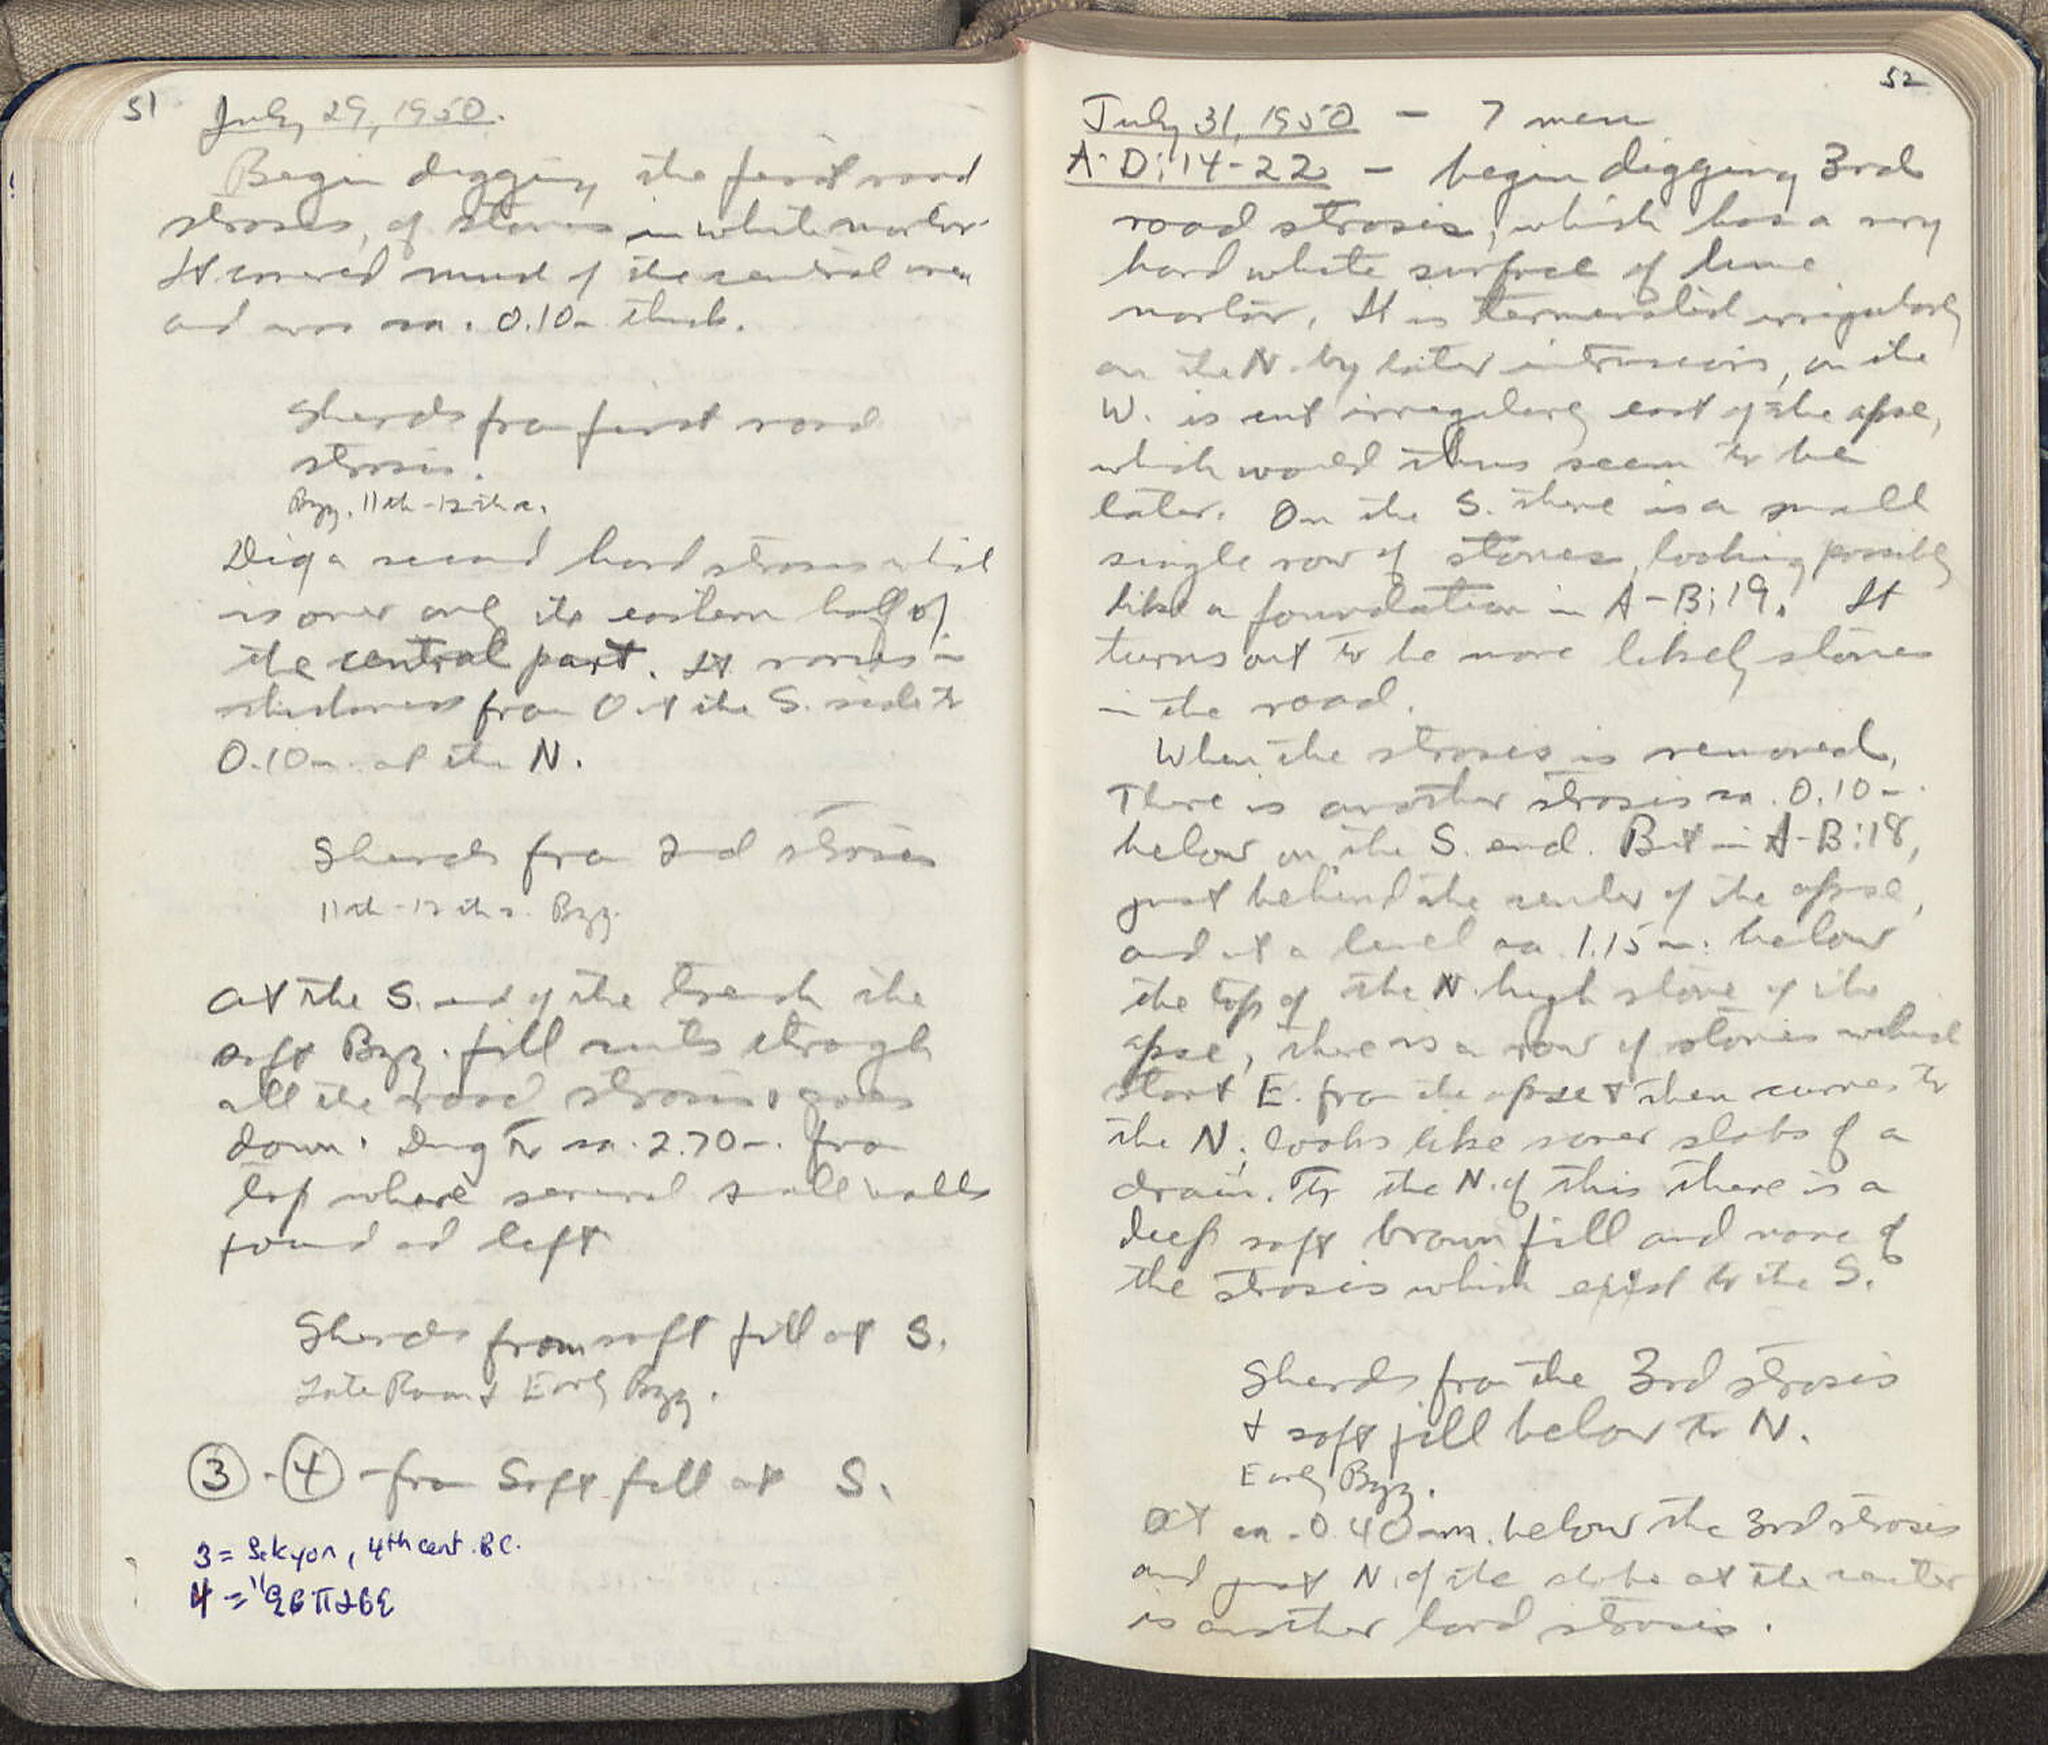 51
July 29, 1950.
Begin digging the first road
stroses, of stones in white mortar.
It covered most of the central area
and was ca. 0.10m thick.
Sherds from first road
strosis.
Byz. 11th-12th c.
Dig a second hard strosis which
is over only the eastern half of
the central part. It varies in
thickness from 0 at the S. side to
0.10m. at the N.
Sherds from 2nd strosis
11th-12th c. Byz.
At the S. end of the trench the
soft Byz. fill cuts through
all the road strosis & goes
down. Dug to ca. 2.70m. from
top where several small walls
found and left
Sherds from soft fill at S.
Late Roman & Early Byz.
3 - 4 - from Soft fill at S.
3 = Sikyon, 4th cent. BC.
4 =
52
July 31, 1950 - 7 men
A-D:14-22 - begin digging 3rd
road strosis, which has a very
hard white surface of lime
mortar. It is terminated irregularly
on the N. by later intrusions, on the
W. is cut irregularly east of the apse,
which would thus seem to be
later. On the S. there is a small
single row of stones, looking possibly
like a foundation in A-B:19. It
turns out to be more likely stones
in the road.
When the strosis is removed,
There is another strosis ca. 0.10m.
below on the S. end. But in A-B:18,
just behind the center of the apse,
and at a level ca. 1.15m. below
the top of the N. high stone of the
apse, there is a row of stones which
start E. from the apse & then curves to
the N; looks like cover slabs of a
drain. To the N. of this there is a
deep soft brown fill and none of
the strosis which exist to the S.
Sherds from the 3rd strosis
+ soft fill below to N.
Early Byz.
At ca. 0.40m. below the 3rd strosis
and just N. of the slabs at the center
is another hard strosis.